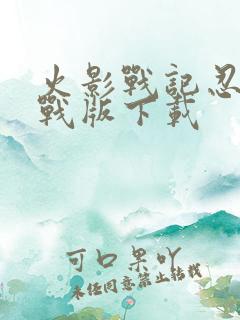 火影戰記忍
戰版下載
可口果吖
未经同意禁止转载